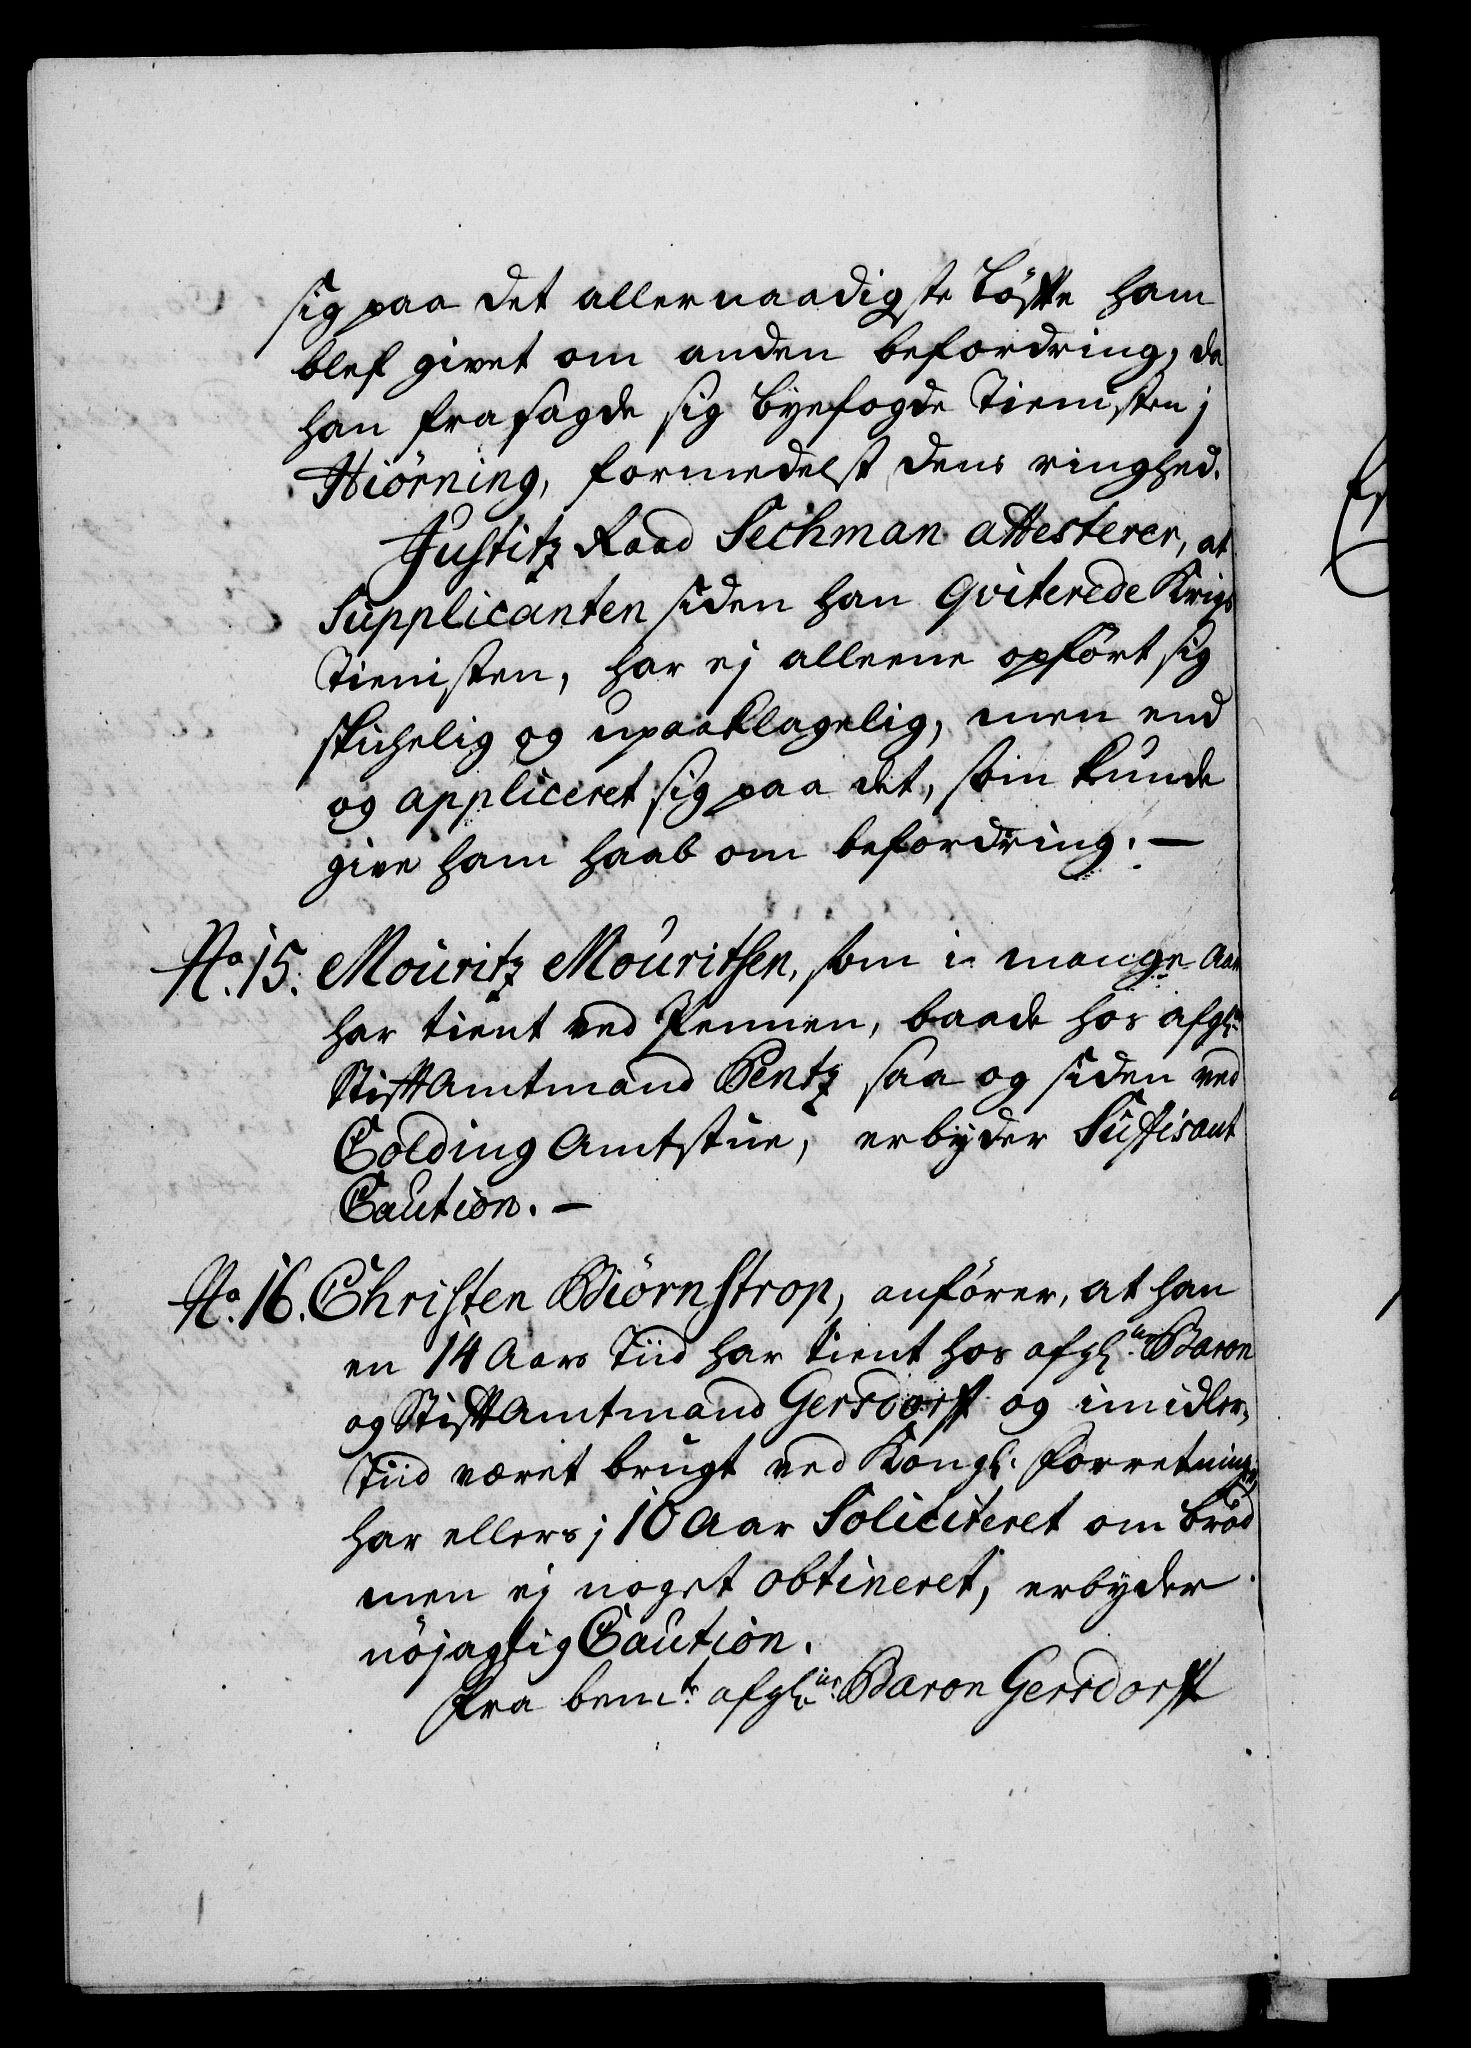 sig paa det allernaadigste Löfte ham
blef givet om anden befordring, da
han frasagde sig Byefogde Tienisten j
Hiörning, formedelst dens ringhed.
Justitz Raad Seckman attesterer, at
Supplicanten siden han Qviterede Krigs
Tienisten, har ej alleene opfört sig
skichelig og upaaklagelig, men end
og appliceret sig paa det, som kunde
give ham haab om befordring. —
No. 15. Mouritz Mouritsen, som i mange Aar
har tient ved Pennen, baade hos afgl:ne
StiftAmtmand Bentz saa og siden ved
Colding Amtstue, erbyder Suffisant
Caution. —
No. 16. Christen Biörnstrop, anförer, at han
en 14 Aars Tiid har tient hos afgl:ne Baron
og StiftAmtmand Gersdorff og imidler,,
Tiid været brugt ved Kongl: Forretninger,
har ellers j 10 Aar Soliciteret om bröd
men ej noget obtineret, erbyder
nöjagtig Caution.
Fra bemte afgl:ne Baron Gersdorff